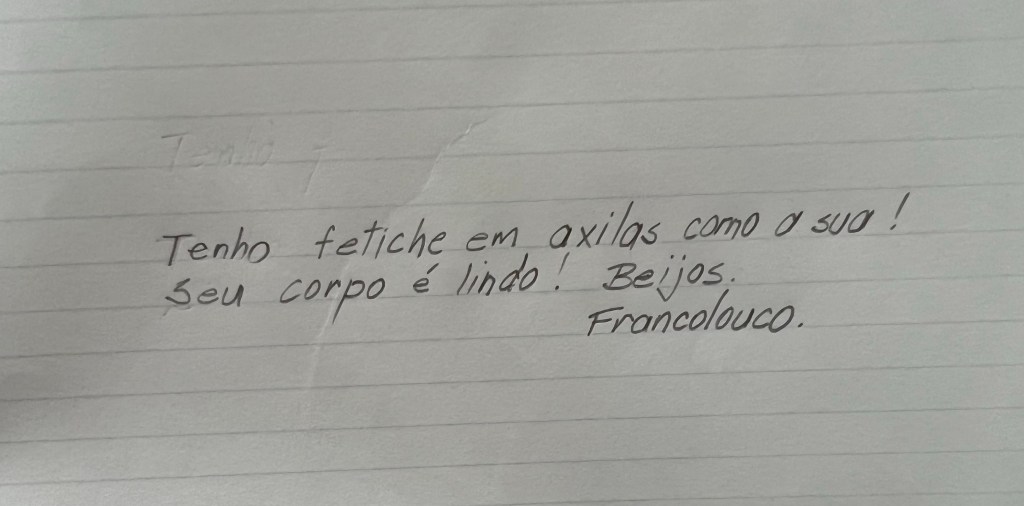 Tenho f
Tenho fetiche em axilas como a sua!
Seu corpo é lindo! Beijos.
Francolouco.